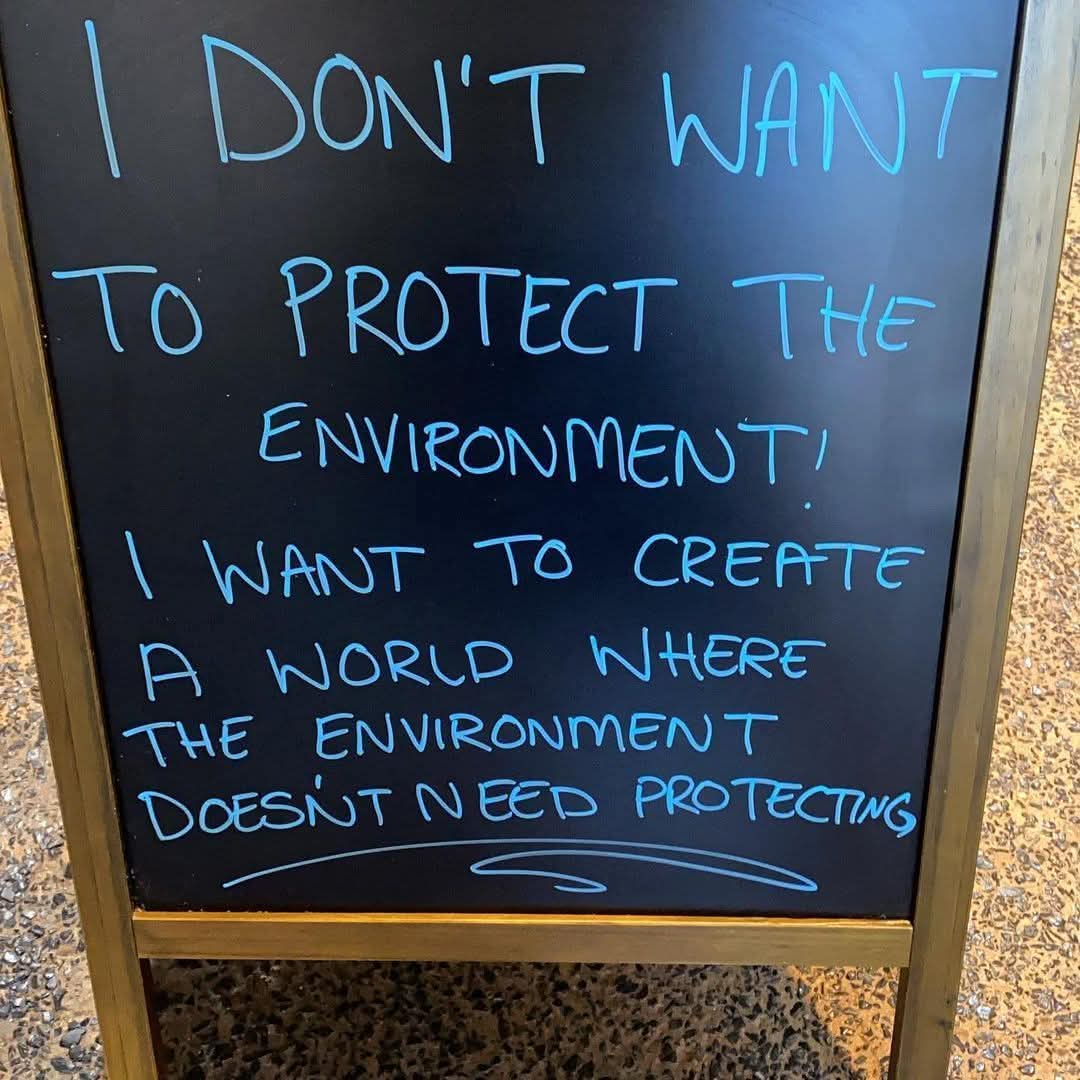 I DON'T WANT
TO PROTECT THE
ENVIRONMENT!
I WANT TO CREATE
A WORLD WHERE
THE ENVIRONMENT
DOESN'T NEED PROTECTING